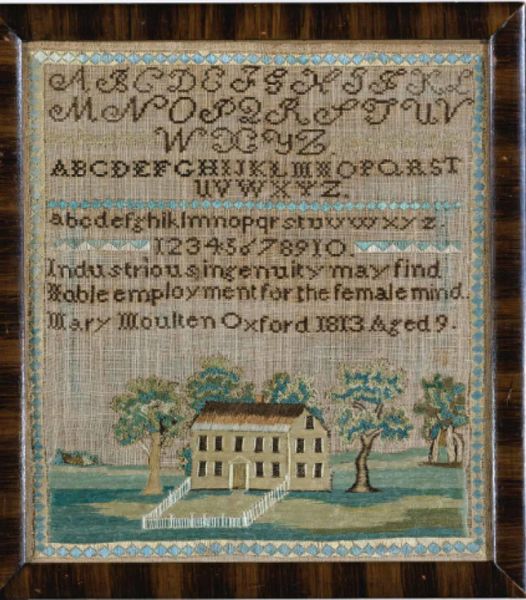 A B C D E F G H I J K L
M N O P Q R S T U V
W X Y Z
A B C D E F G H I J K L M N O P Q R S T
U V W X Y Z.
a b c d e f g h i k l m n o p q r s t u v w x y z.
1 2 3 4 5 6 7 8 9 1 0
Industrious ingenuity may find
Noble employment for the female mind.
Mary Moulten Oxford 1813 Aged 9.